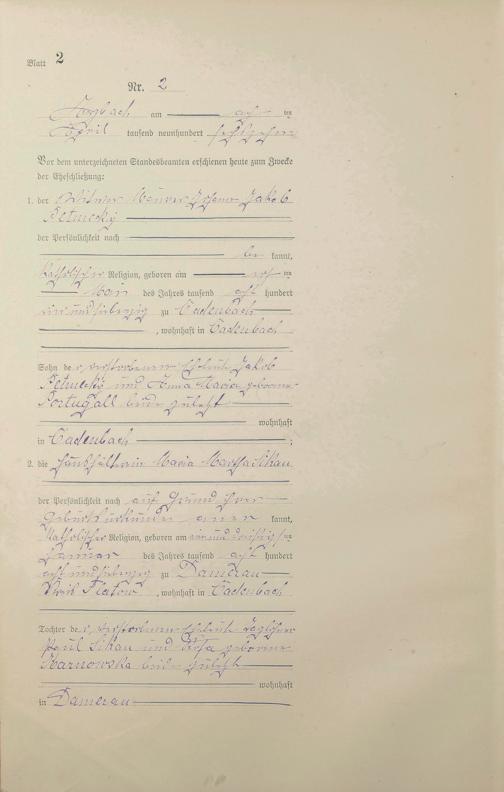 Blatt 2
Nr. 2
am acht ten
April tausend neunhundert sechszehn
Vor dem unterzeichneten Standesbeamten erschienen heute zum Zwecke
der Eheschließung:
1. der Witwer Maurer Johann Jakob
der Persönlichkeit nach
be kannt,
katholischer Religion, geboren am ten
Mai des Jahres tausend acht hundert
vier und siebenzig zu Cadenbach
, wohnhaft in Cadenbach
Sohn de r verstorbenen Eheleute Jakob
und Anna Maria geborene
Portugall beide zuletzt
wohnhaft
in Cadenbach ;
2. die Haushälterin Maria Martha Sikau
der Persönlichkeit nach auf Grund ihrer
Geburtsurkunde aner kannt,
katholischer Religion, geboren am ein und dreißig sten
Januar des Jahres tausend acht hundert
acht und siebenzig zu Damerau
Kreis Flatow , wohnhaft in Cadenbach
Tochter de r verstorbenen Eheleute
Paul Sikau und Rosa geborene
beide zuletzt
wohnhaft
in Damerau